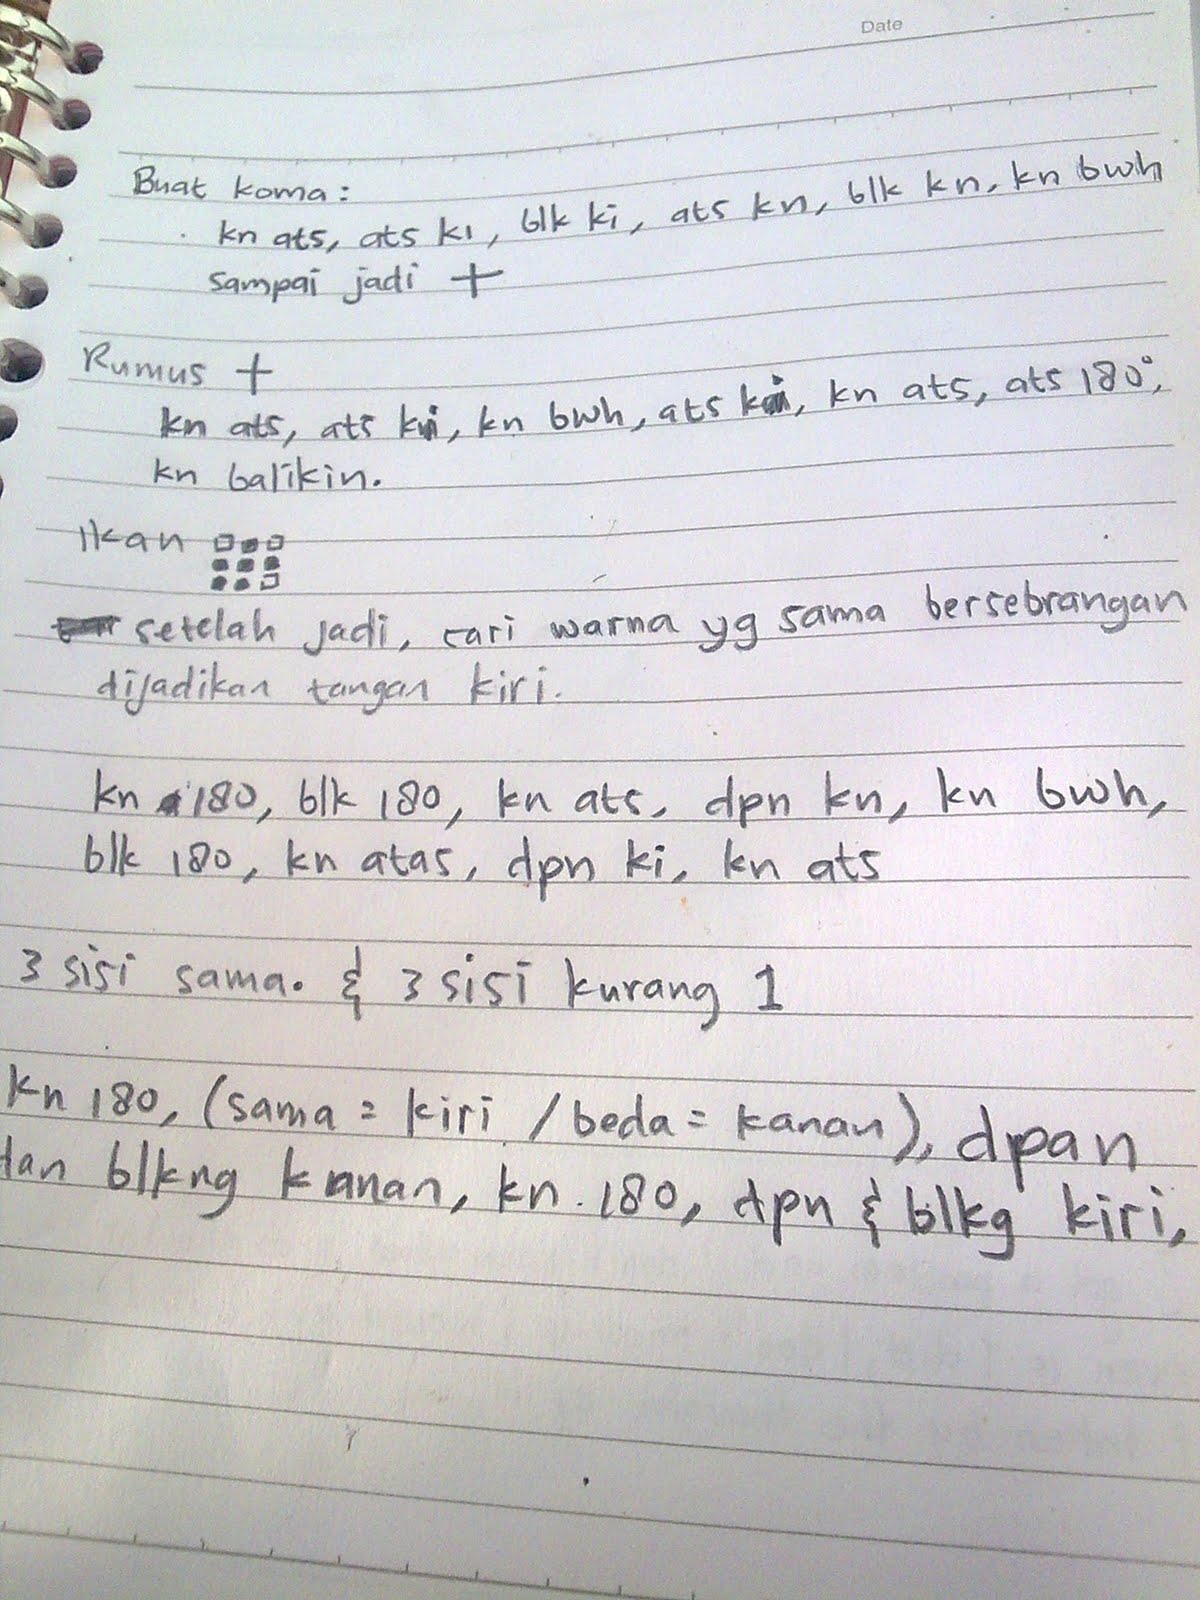 Date
Buat koma:
kn ats, ats ki, blk ki, ats kn, blk kn, kn bwh
sampai jadi +
Rumus +
kn ats, ats ki, kn bwh, ats ki, kn ats, ats 180°,
kn balikin.
Ikan
setelah jadi, cari warna yg sama bersebrangan
dijadikan tangan kiri.
kn 180, blk 180, kn ats, dpn kn, kn bwh,
blk 180, kn atas, dpn ki, kn ats
3 sisi sama. & 3 sisi kurang 1
kn 180, (sama = kiri / beda = kanan), dpan
dan blkng kanan, kn. 180, dpn & blkg kiri,